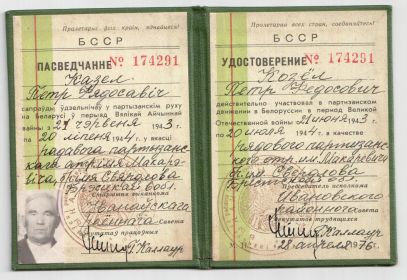 Пралетарыі ўсіх краін, яднайцеся!
БССР
ПАСВЕДЧАННЕ № 174291
Казёл
Пётр Фядосавіч
сапраўды ўдзельнічаў у партызанскім руху
на Беларусі ў перыяд Вялікай Айчыннай
вайны з 21 чэрвеня 1943 г.
па 20 ліпеня 1944 г. у якасці
радавога партызан-
скага атрада Макарэ-
віча, імя Свярдлова
Брэсцкай вобл.
Старшыня выканкома
Іванаўскага
раённага Савета
дэпутатаў працоўных
Каллаур
Пролетарии всех стран, соединяйтесь!
БССР
УДОСТОВЕРЕНИЕ № 174291
Козёл
Петр Федосович
действительно участвовал в партизанском
движении в Белоруссии в период Великой
Отечественной войны с 21 июня 1943 г.
по 20 июля 1944 г. в качестве
рядового партизан-
ского отр. им. Макаревича
бр. им. Свердлова
Брестской обл.
Председатель исполкома
Ивановского
районного Совета
депутатов трудящихся
Каллаур
28 апреля 1976 г.